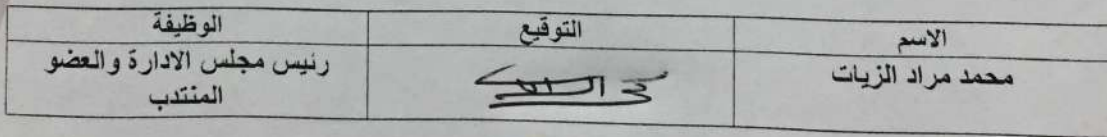 الاسم التوقيع الوظيفة
محمد مراد الزيات رئيس مجلس الادارة والعضو
المنتدب